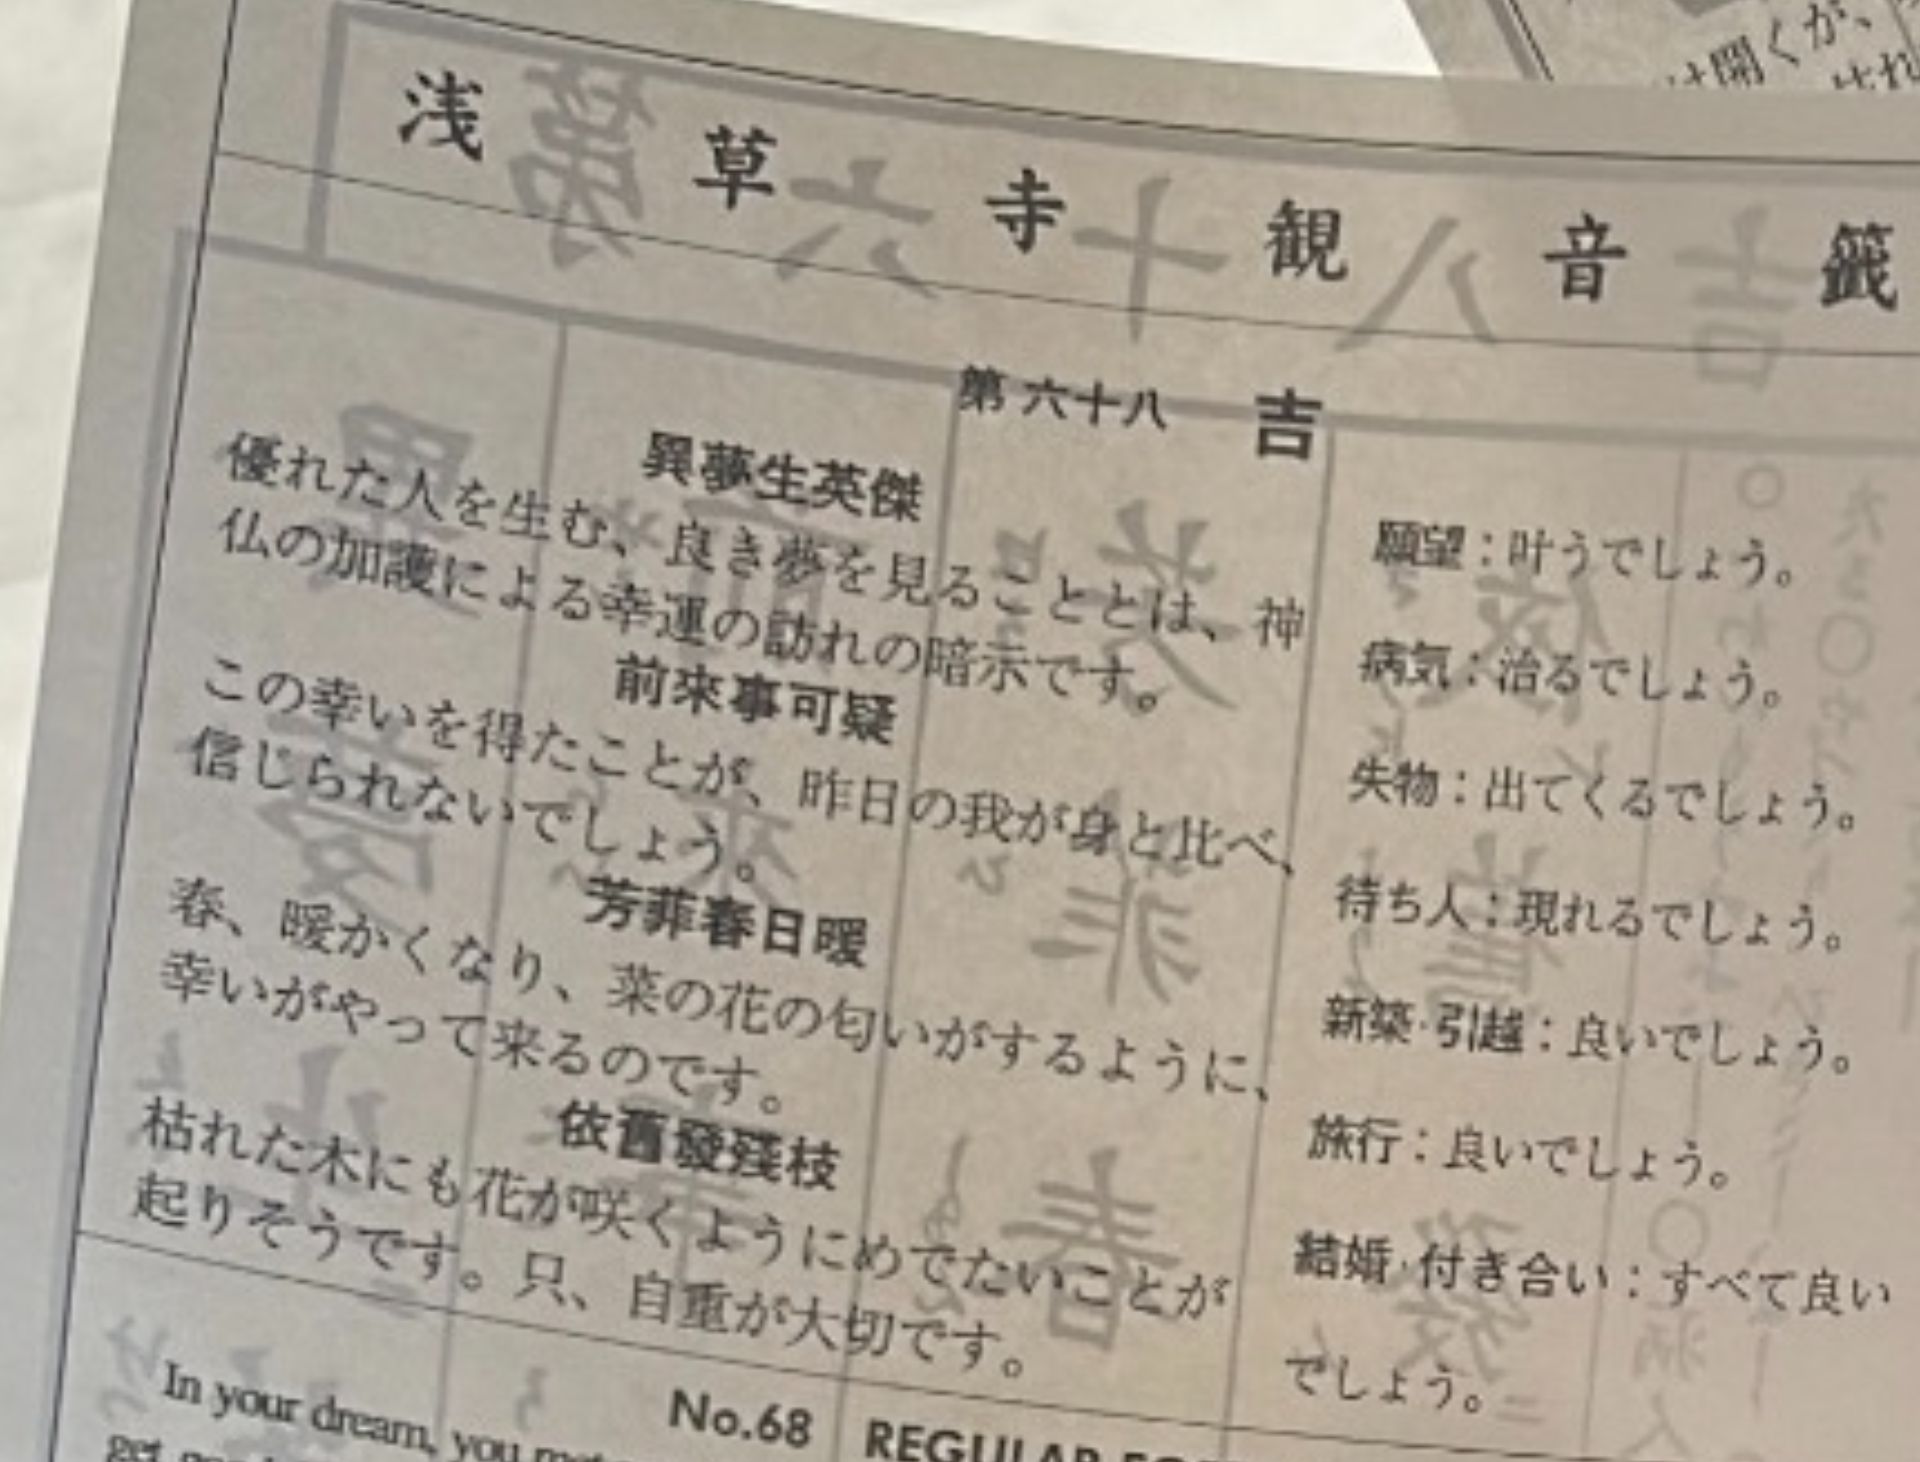 浅草寺観音籤
第六十八 吉
異夢生英傑
優れた人を生む、良き夢を見ることとは、神
仏の加護による幸運の訪れの暗示です。
前來事可疑
この幸いを得たことが、昨日の我が身と比べ、
信じられないでしょう。
芳菲春日暖
春、暖かくなり、菜の花の匂いがするように、
幸いがやって来るのです。
依舊發殘枝
枯れた木にも花が咲くようにめでたいことが
起りそうです。只、自重が大切です。
願望:叶うでしょう。
病気:治るでしょう。
失物:出てくるでしょう。
待ち人:現れるでしょう。
新築·引越:良いでしょう。
旅行:良いでしょう。
結婚·付き合い:すべて良い
でしょう。
No.68 REGULAR
In your dream, you
get
は開くが、